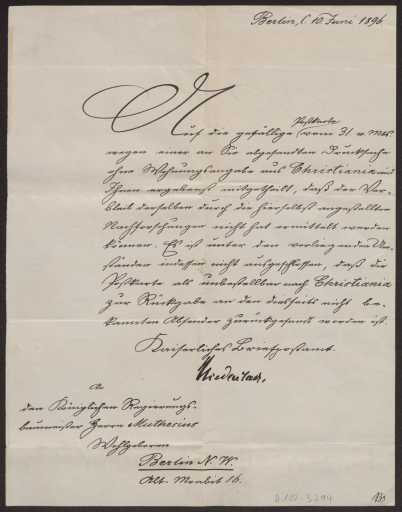 Berlin, C 10 Juni 1896
Postkarte
Auf die gefällige vom 31 v. Mts.
wegen einer an Sie abgesandten Drucksache
ohne Wohnungsangabe aus Christiania wird
Ihnen ergebenst mitgetheilt, daß der Ver-
bleib derselben durch die hierselbst angestellten
Nachforschungen nicht hat ermittelt werden
können. Es ist unter den vorliegenden Um-
ständen indessen nicht ausgeschlossen, daß die
Postkarte als unbestellbar nach Christiania
zur Rückgabe an den diesseits nicht be-
kannten Absender zurückgesandt worden ist.
Kaiserliches Briefpostamt.
An
den Königlichen Regierungs-
baumeister Herrn Muthesius
Wohlgeboren
Berlin N. W.
Alt. Moabit 16.
D 102-3294